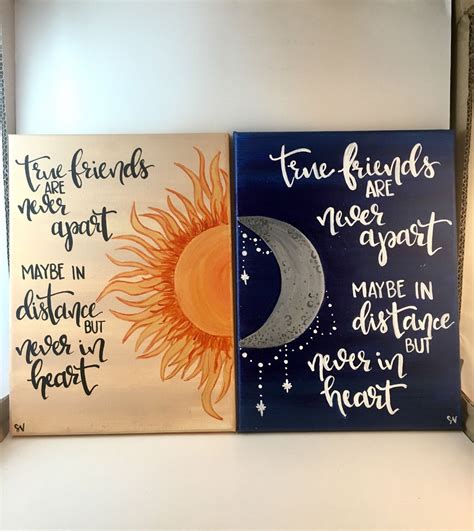 true friends
ARE
never
apart
MAYBE IN
distance
BUT
never in
heart
SV
true friends
ARE
never
apart
MAYBE IN
distance
BUT
never in
heart
SV